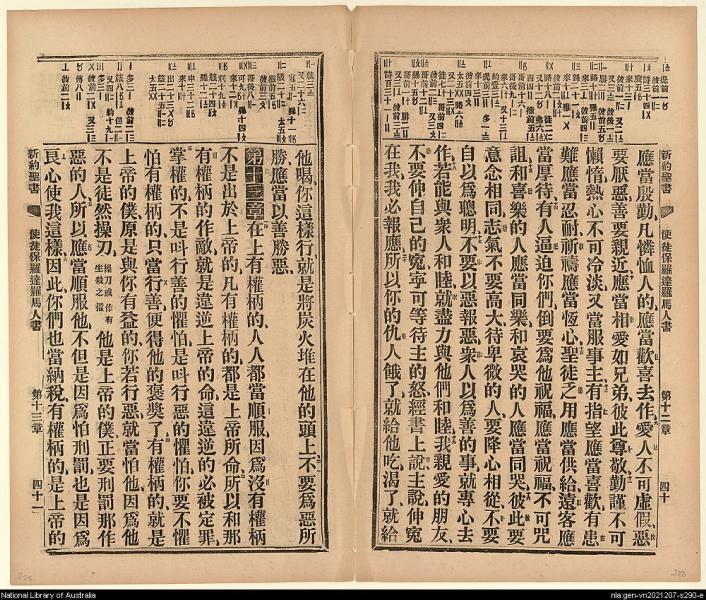 新約聖書
使徒保羅達羅馬人書
第十三章
四十
應當殷勤凡憐恤人的應當歡喜去作愛人不可虛假惡
要厭惡善要親近應當相愛如兄弟彼此尊敬勤謹不可
懶惰熱心不可冷淡又當服事主有指望應當喜歡有患
難應當忍耐祈禱應當恆心聖徒乏用應當供給遠客應
當厚待有人逼迫你們倒要爲他祝福應當祝福不可咒
詛和喜樂的人應當同樂和哀哭的人應當同哭彼此要
意念相同志氣不要高大待卑微的人要降心相從不要
自以爲聰明不要以惡報惡衆人以爲善的事就專心去
作若能與衆人和睦就盡力與他們和睦我親愛的朋友
不要伸自己的寃寧可等待主的怒經書上說主說伸寃
在我我必報應所以你的仇人餓了就給他吃渴了就給
他喝你這樣行就是將炭火堆在他的頭上不要爲惡所
勝應當以善勝惡
第十三章在上有權柄的人人都當順服因爲沒有權柄
不是出於上帝的凡有權柄的都是上帝所命所以和那
有權柄的作敵就是違逆上帝的命這違逆的必被定罪
掌權柄的不是叫行善的懼怕是叫行惡的懼怕你要不懼
怕有權柄的只當行善便得他的褒獎了有權柄的就是
上帝的僕原是與你有益的你若行惡就當怕他因爲他
不是徒然操刀操刀或作有生殺之權他是上帝的僕正要刑罰那作
惡的人所以應當順服他不但是因爲怕刑罰也是因爲
良心使我這樣因此你們也當納稅有權柄的是上帝的
新約聖書
使徒保羅達羅馬人書
第十三章
四十一
National Library of Australia
nla.gen-vn2021207-s290-e